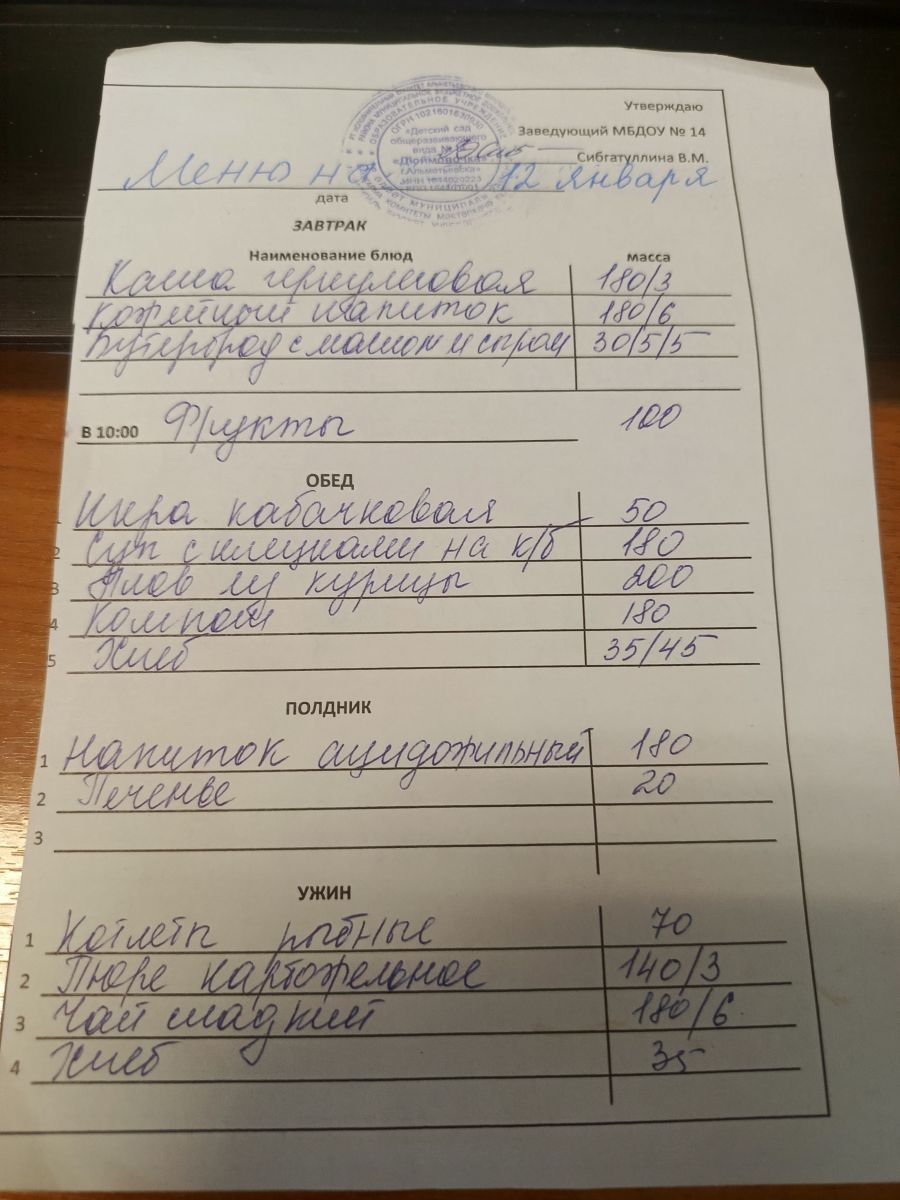 Утверждаю
Заведующий МБДОУ № 14
Сибгатуллина В.М.
ОБРАЗОВАТЕЛЬНОЕ УЧРЕЖДЕНИЕ
«Детский сад
общеразвивающего
вида №
«Дюймовочка»
г.Альметьевска»
Меню на 12 января
дата
ЗАВТРАК
Наименование блюд масса
Каша геркулесовая 180/3
Кофейный напиток 180/6
Бутерброд с маслом и сыром 30/5/5
В 10:00 Фрукты 100
ОБЕД
1 Икра кабачковая 50
2 Суп с клецками на к/б 180
3 Плов из курицы 200
4 Компот 180
5 Хлеб 35/45
ПОЛДНИК
1 Напиток ацидофильный 180
2 Печенье 20
3
УЖИН
1 Котлеты рыбные 70
2 Пюре картофельное 140/3
3 Чай сладкий 180/6
4 Хлеб 35